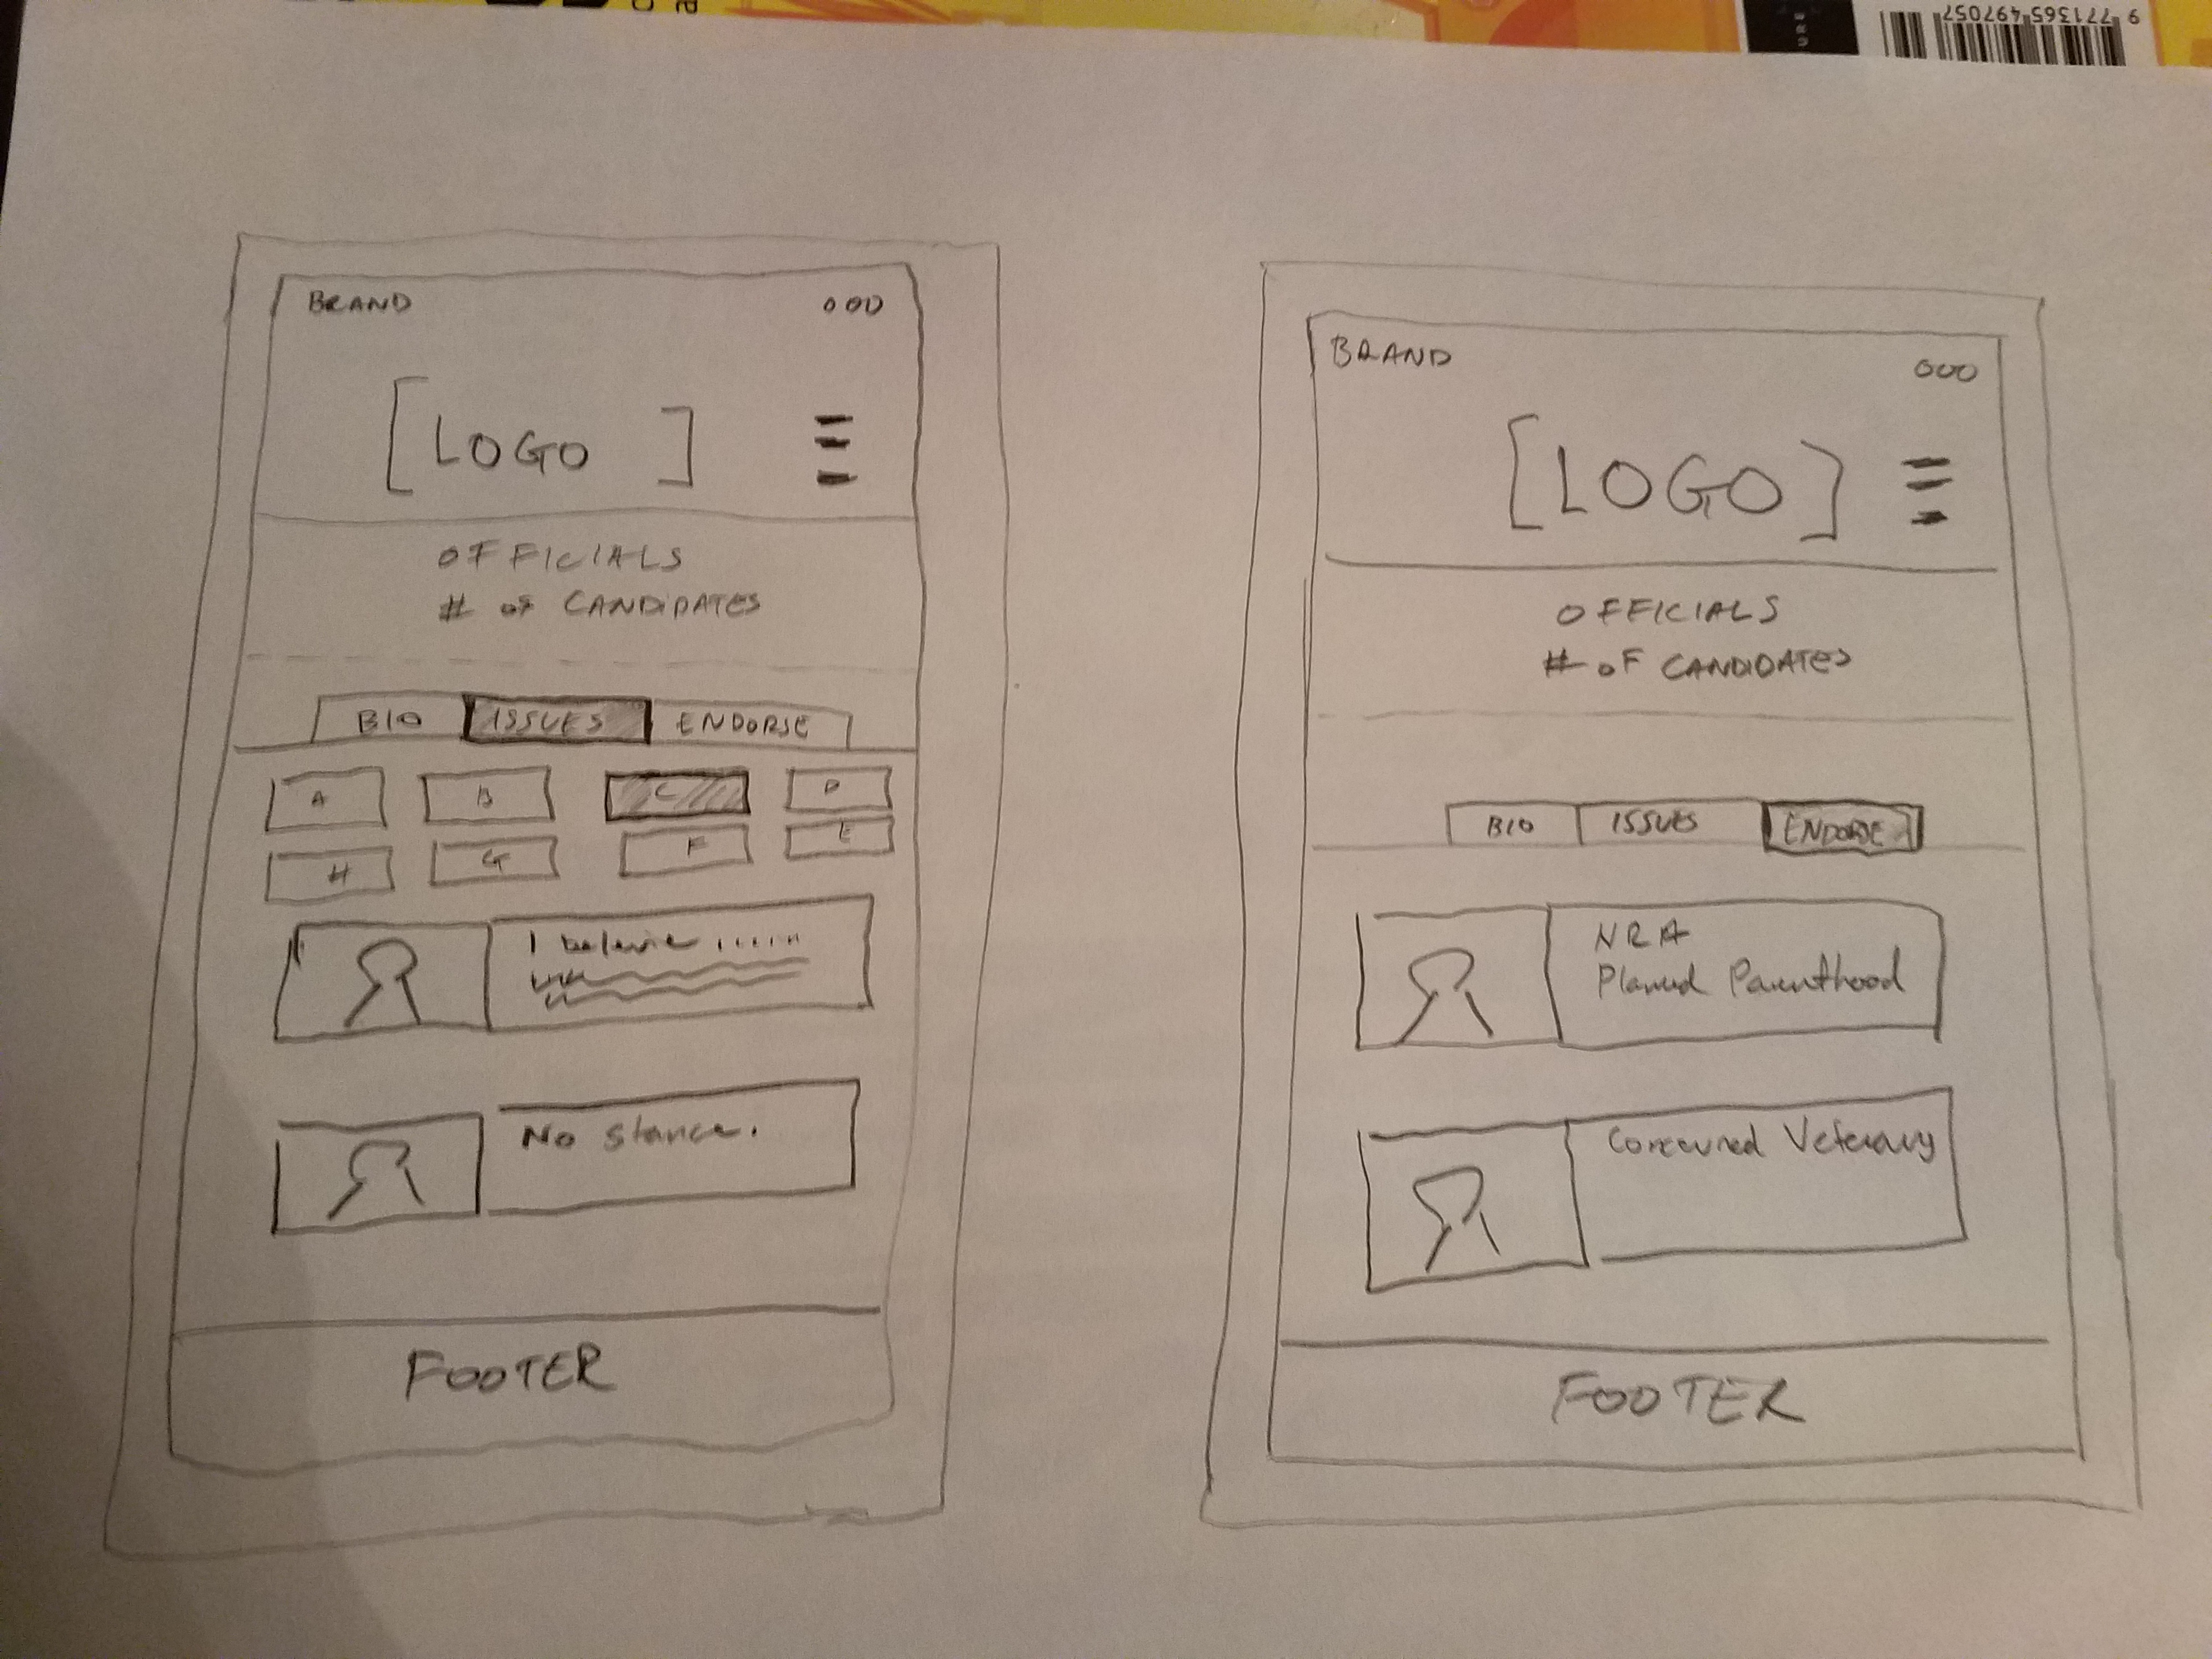 BRAND
000
[LOGO]
OFFICIALS
# OF CANDIDATES
BIO ISSUES ENDORSE
A B C D
H G F E
I beleive
No Stance.
FOOTER
BRAND
000
[LOGO]
OFFICIALS
# OF CANDIDATES
BIO ISSUES ENDORSE
NRA
Planned Parenthood
Concerned Veterans
FOOTER
URE
9 771365 497057